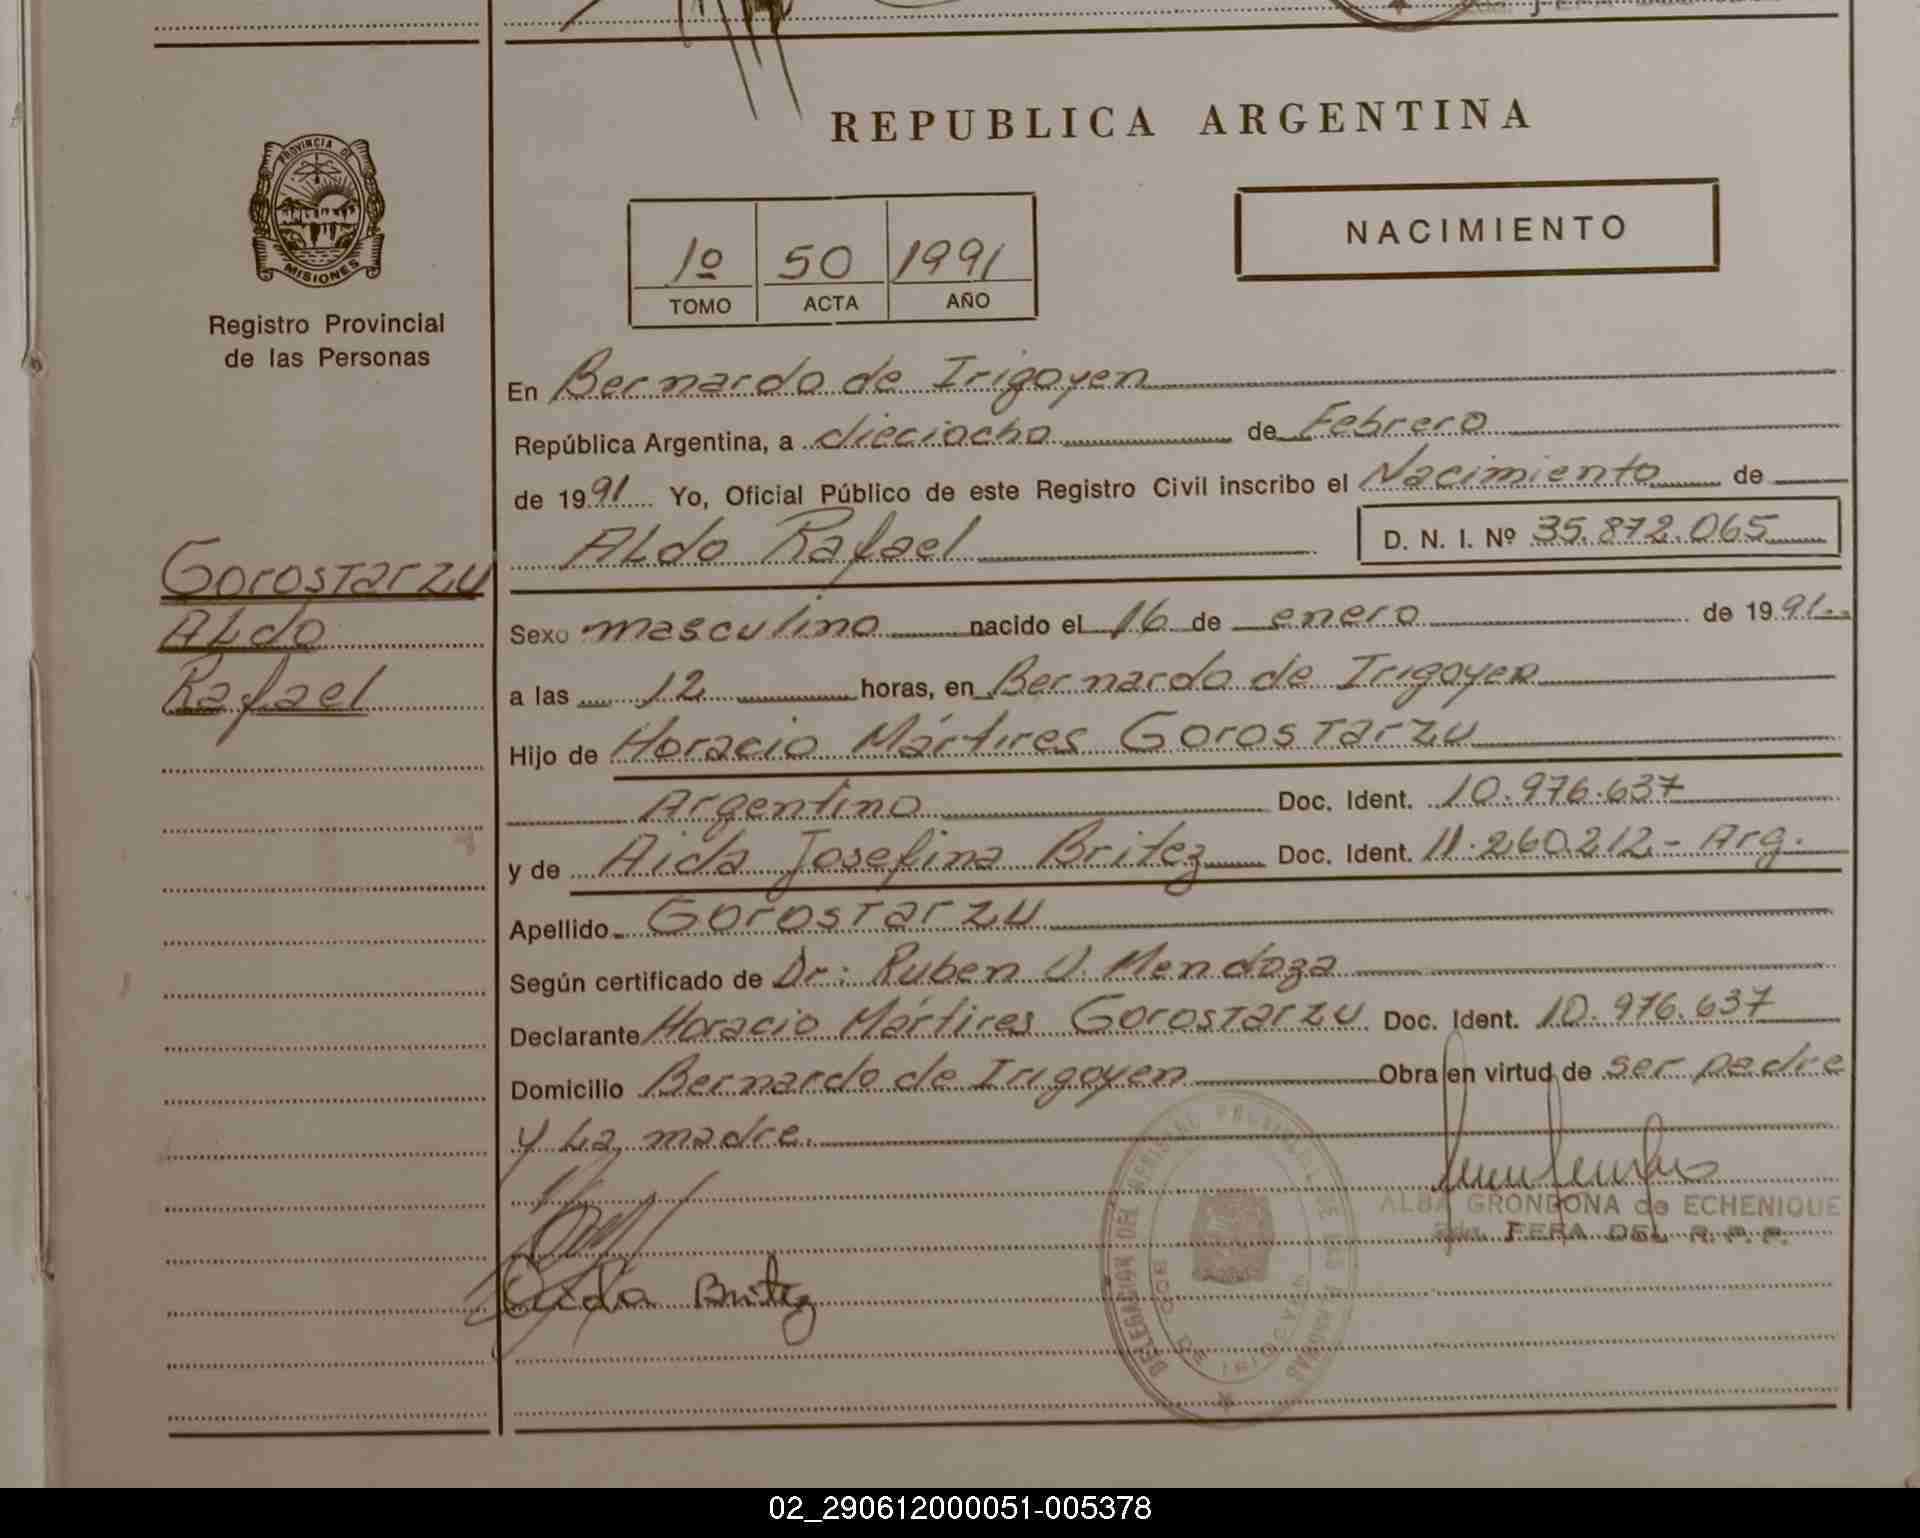 REPUBLICA ARGENTINA
PROVINCIA DE
MISIONES
Registro Provincial
de las Personas
1º 50 1991
TOMO ACTA AÑO
NACIMIENTO
En Bernardo de Irigoyen
República Argentina, a dieciocho de Febrero
de 1991 Yo, Oficial Público de este Registro Civil inscribo el Nacimiento de
Aldo Rafael D. N. I. Nº 35.872.065
Gorostarzu
Aldo
Rafael
Sexo masculino nacido el 16 de enero de 1991
a las 12 horas, en Bernardo de Irigoyen
Hijo de Horacio Mártires Gorostarzu
Argentino Doc. Ident. 10.976.637
y de Aida Josefina Britez Doc. Ident. 11.260.212- Arg.
Apellido Gorostarzu
Según certificado de Dr: Ruben V. Mendoza
Declarante Horacio Mártires Gorostarzu Doc. Ident. 10.976.637
Domicilio Bernardo de Irigoyen Obra en virtud de ser padre
y La madre.
ALBA GRONDONA de ECHENIQUE
JEFA DEL R. P. P.
Aida Britez
DELEGACION DEL REGISTRO PROVINCIAL DE LAS PERSONAS
IRIGOYEN
02_290612000051-005378